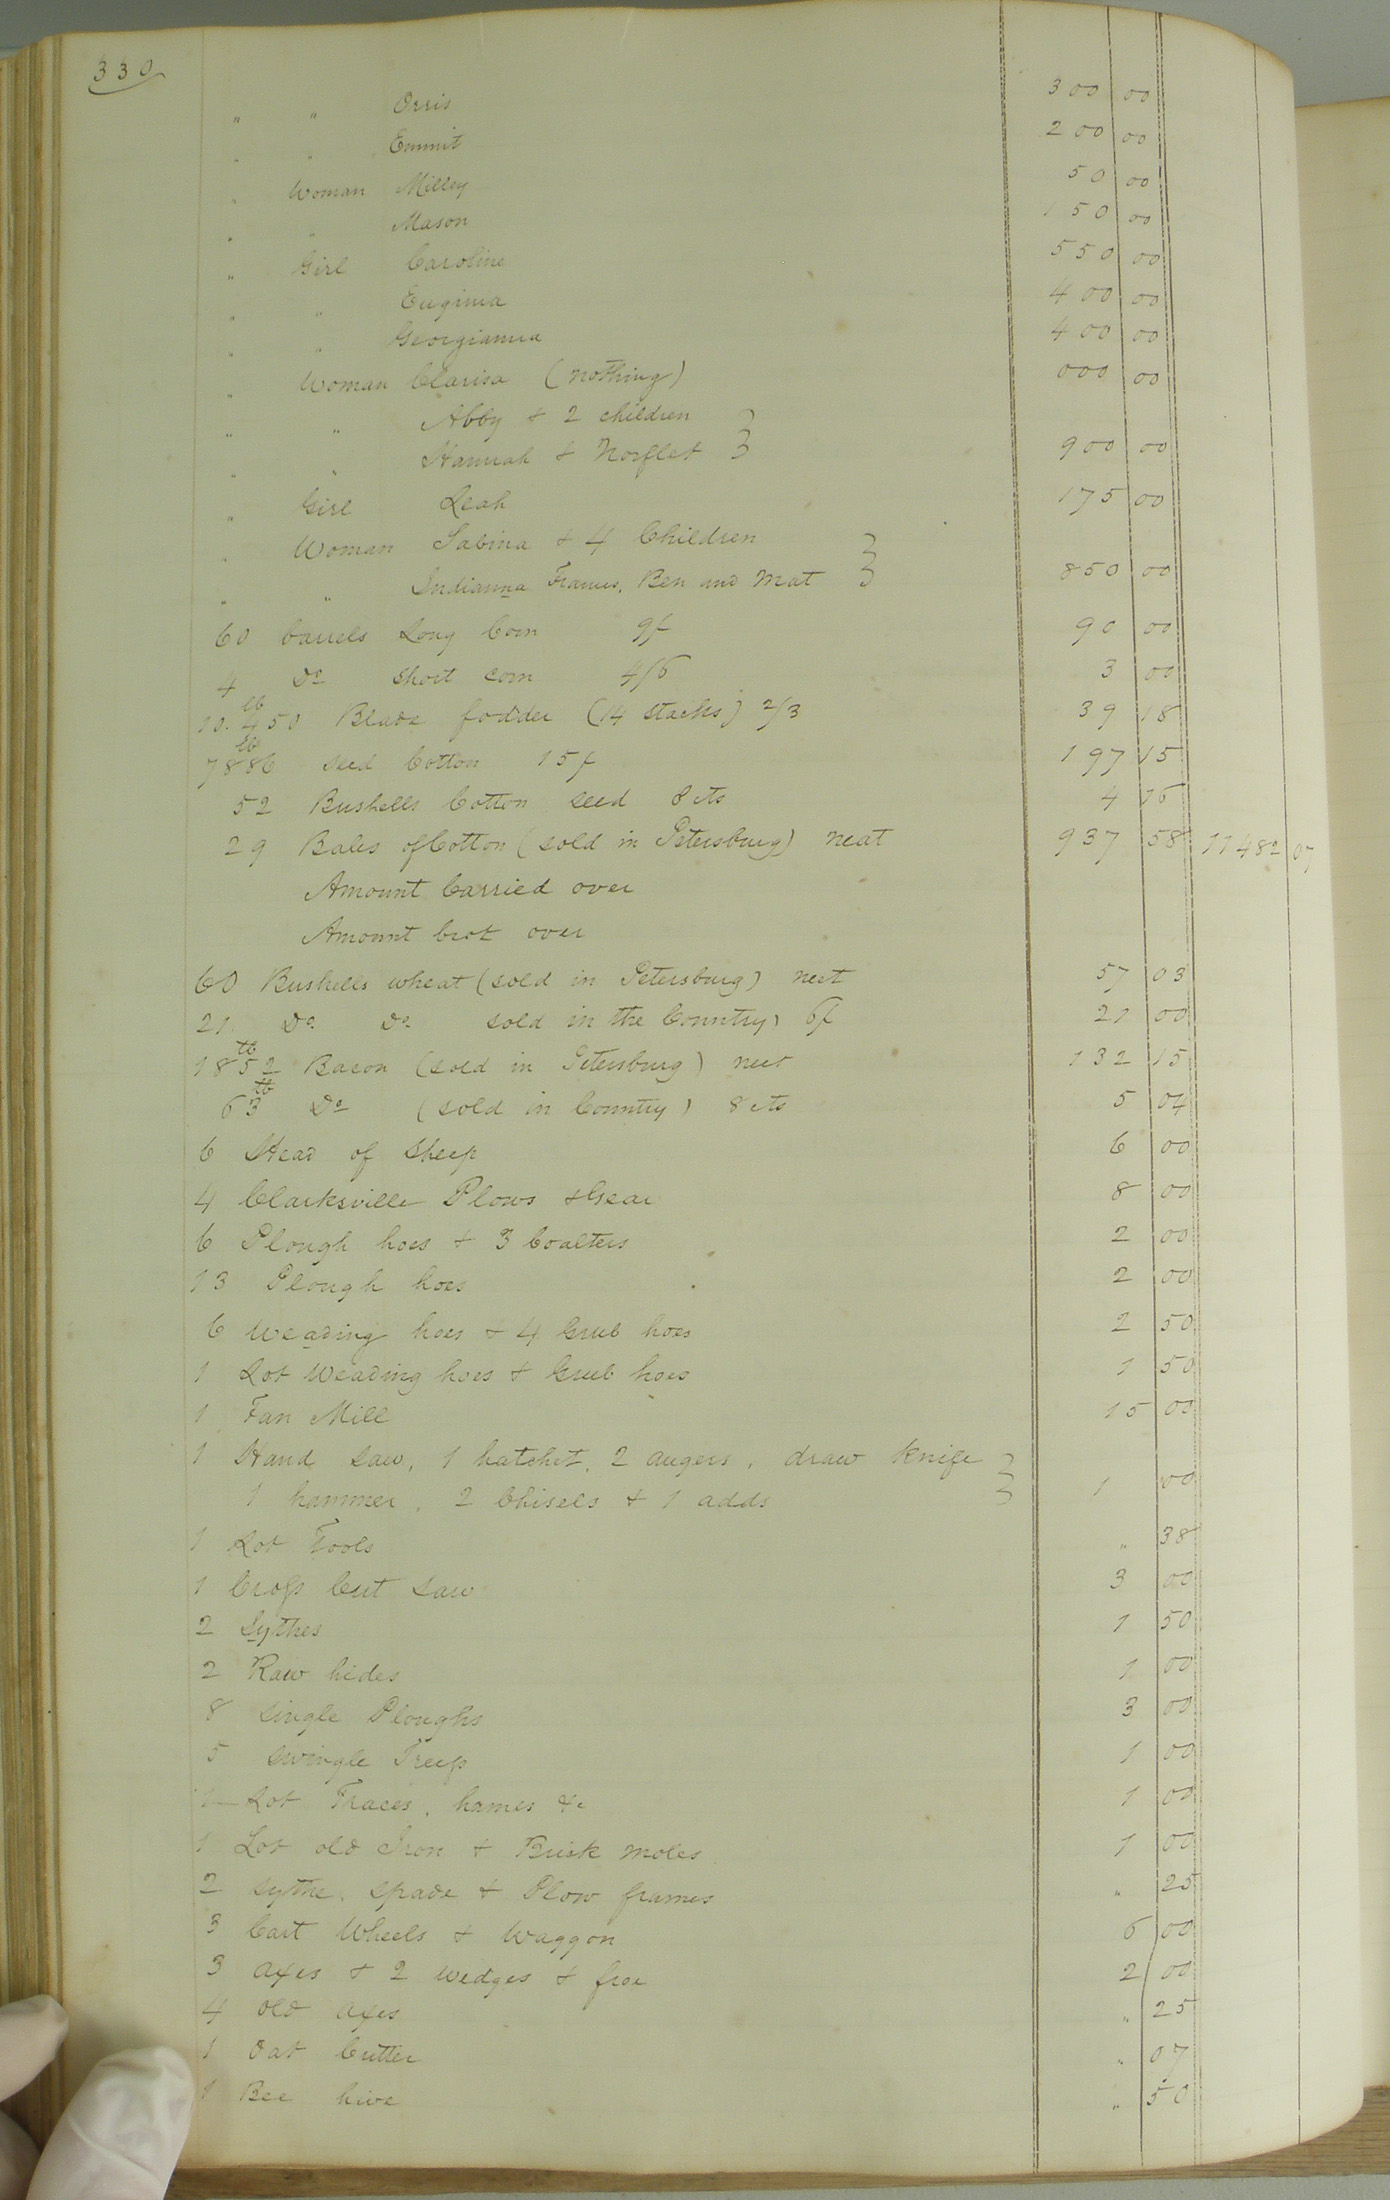 330
" " Orris 300 00
" " Emmit 200 00
" Woman Milley 50 00
" " Mason 150 00
" Girl Caroline 550 00
" " Euginia 400 00
" " Georgianna 400 00
" Woman Clarisa (nothing) 000 00
" " Abby & 2 children
" " Hannah & Norflet } 900 00
" Girl Leah 175 00
" Woman Sabina & 4 Children
" " Indianna Frances, Ben and Mat } 850 00
60 barrels Long Corn 9/ 90 00
4 Do short corn 4/6 3 00
10.450 lb Blade fodder (14 stacks) 2/3 39 18
7886 lb seed Cotton 15/ 197 15
52 Bushells Cotton seed 8 cts 4 16
29 Bales of Cotton (sold in Petersburg) neat 937 58 11482 07
Amount Carried over
Amount brot over
60 Bushells wheat (sold in Petersburg) neet 57 03
21 Do Do sold in the Country) 6/ 21 00
1852 lb Bacon (sold in Petersburg) neet 132 15
63 lb Do (sold in Country) 8 cts 5 04
6 Head of Sheep 6 00
4 Clarksville Plows & Gear 8 00
6 Plough hoes & 3 Coalters 2 00
13 Plough hoes 2 00
6 Weading hoes & 4 Grub hoes 2 50
1 Lot Weading hoes & Grub hoes 1 50
1 Fan Mill 15 00
1 Hand saw, 1 hatchet, 2 augers, draw Knife
1 hammer, 2 Chisels & 1 adds } 1 00
1 Lot Tools " 38
1 Cross Cut Saw 3 00
2 Sythes 1 50
2 Raw hides 1 00
8 single Ploughs 3 00
5 swingle Trees 1 00
1 Lot Traces, hames &c 1 00
1 Lot old Iron & Brick moles 1 00
2 sythe, spade & Plow frames " 25
3 Cart Wheels & Waggon 6 00
3 axes & 2 wedges & froe 2 00
4 old axes " 25
1 Oat Cutter " 07
1 Bee hive " 50